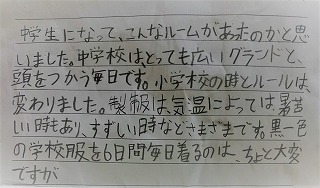 中学生になって、こんなルームがあったのかと思
いました。中学校はとっても広いグランドと、
頭をつかう毎日です。小学校の時とルールは
変わりました。製服は気温によっては暑苦
しい時もあり、すずしい時などさまざまです。黒一色
の学校服を6日間毎日着るのは、ちょと大変
ですが